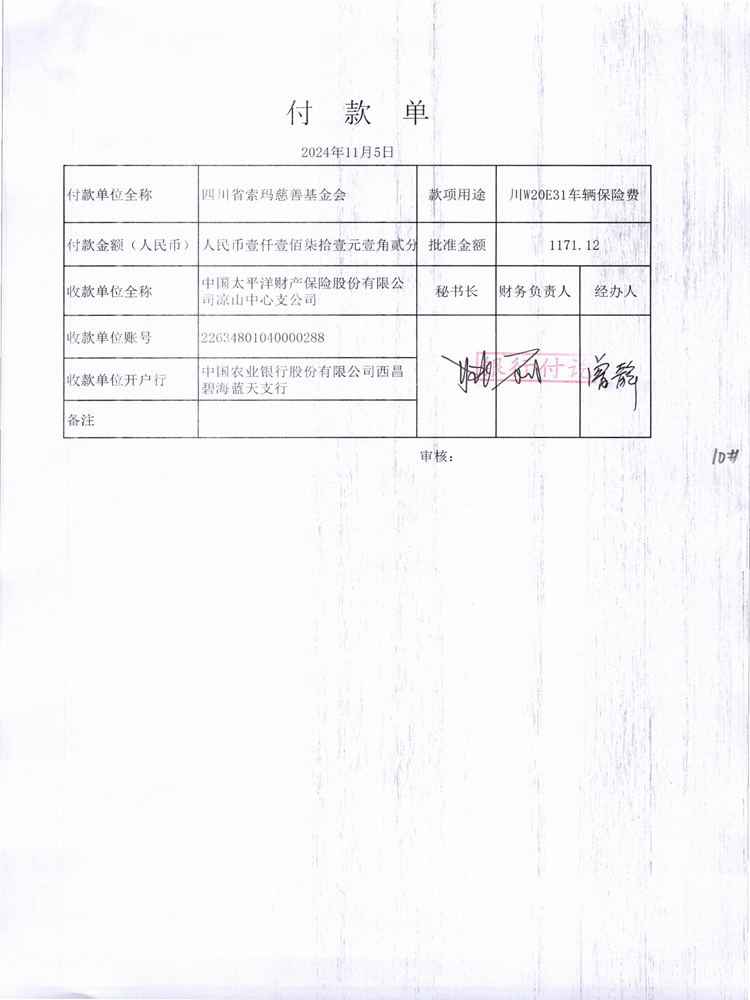 付 款 单
2024年11月5日
付款单位全称 四川省索玛慈善基金会 款项用途 川W20E31车辆保险费
付款金额（人民币） 人民币壹仟壹佰柒拾壹元壹角贰分 批准金额 1171.12
收款单位全称 中国太平洋财产保险股份有限公
司凉山中心支公司 秘书长 财务负责人 经办人
收款单位账号 22634801040000288
收款单位开户行 中国农业银行股份有限公司西昌
碧海蓝天支行
银行付讫
曾静
备注
审核：
10#